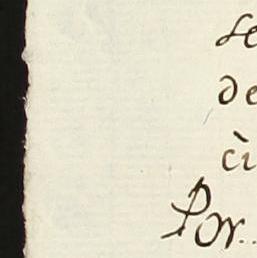 se
de
ci
Por..